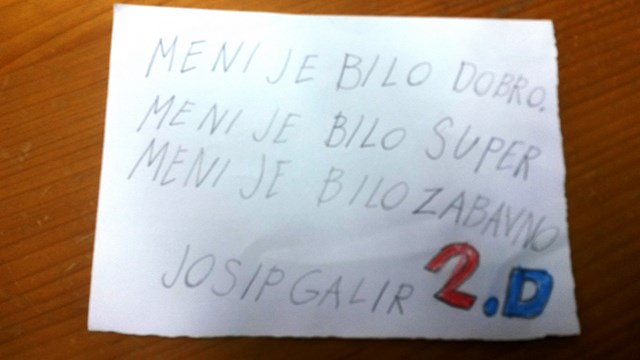 MENI JE BILO DOBRO.
MENI JE BILO SUPER
MENI JE BILO ZABAVNO
JOSIP GALIR 2.D